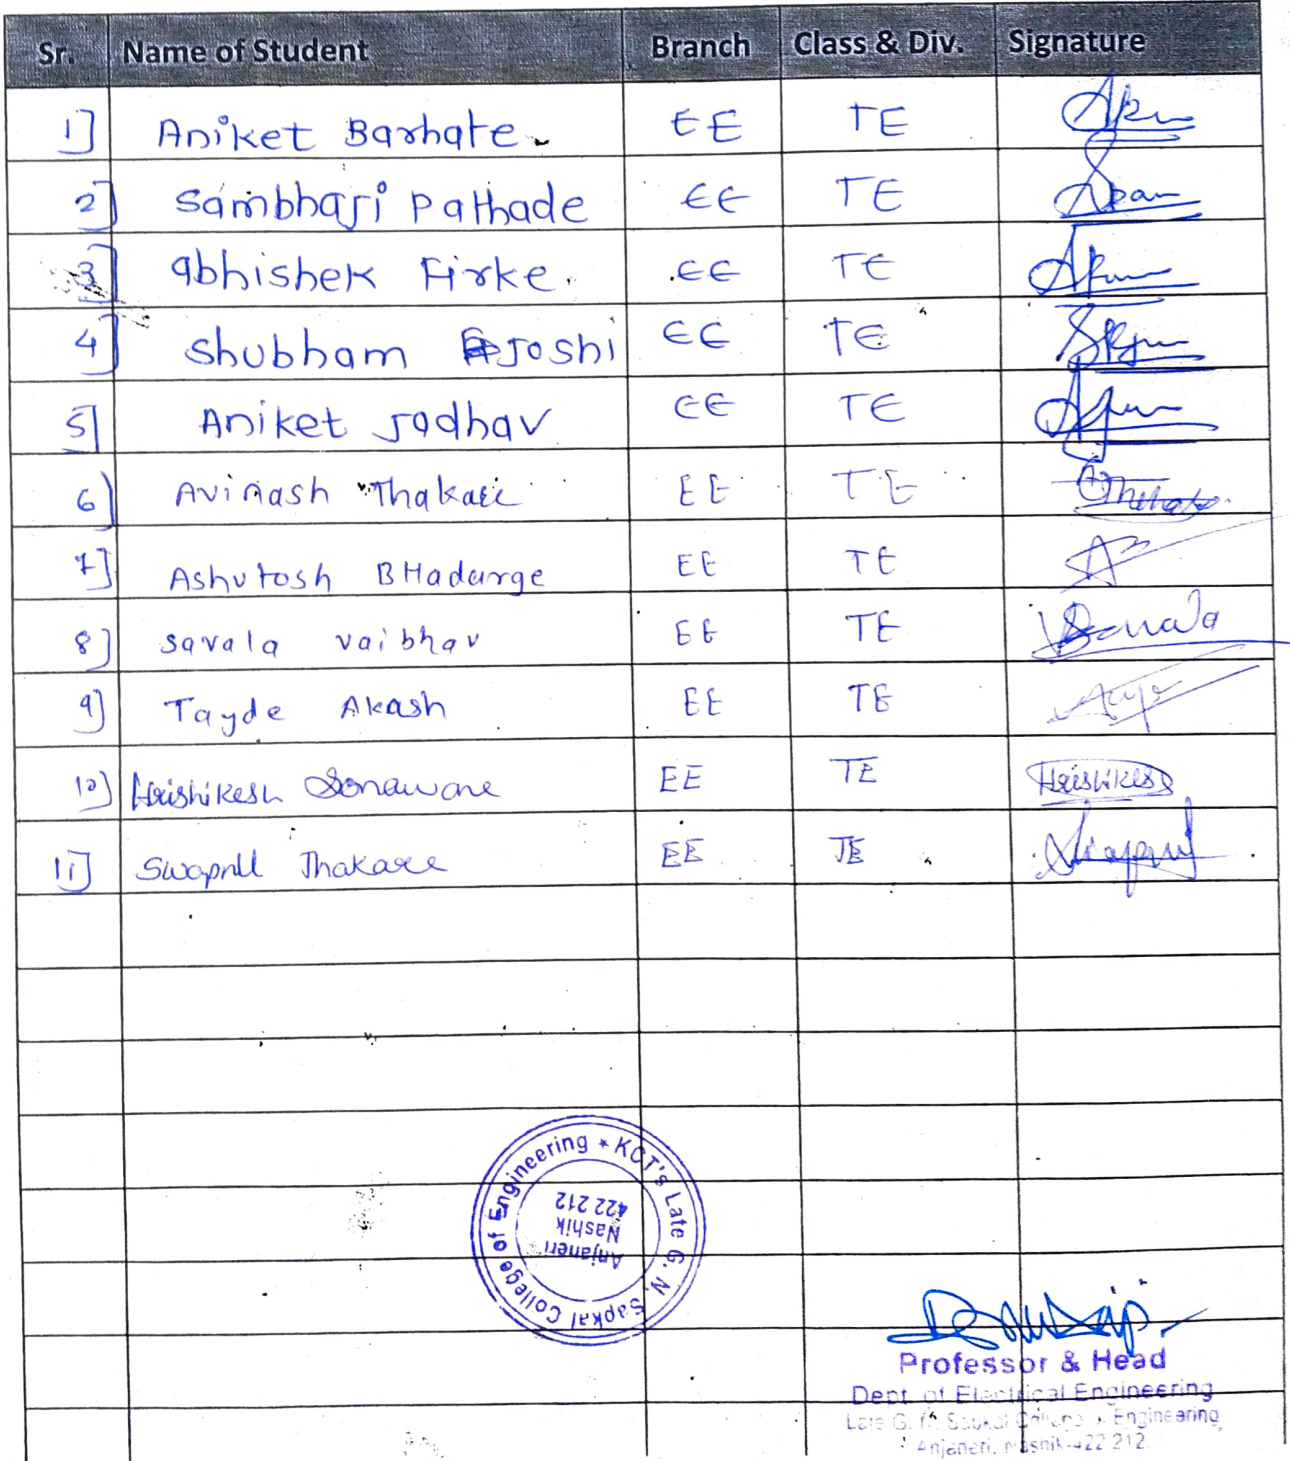 Sr. Name of Student Branch Class & Div. Signature
1] Aniket Barhate. EE TE
2] Sambhaji Pathade EE TE
3] abhishek Firke. EE TE
4] Shubham Joshi EE TE
5] Aniket Jadhav EE TE
6] Avinash Thakare EE TE
7] Ashutosh BHadarge EE TE
8] Savala vaibhav EE TE
9] Tayde Akash EE TE
10] Hrishikesh Sonawane EE TE Hrishikesh
11] Swapnil Thakare EE TE
KCT's Late G. N. Sapkal College of Engineering *
Anjaneri
Nashik
422 212
Professor & Head
Dept. of Electrical Engineering
Late G. N. Sapkal College of Engineering,
Anjaneri, Nashik-422 212.